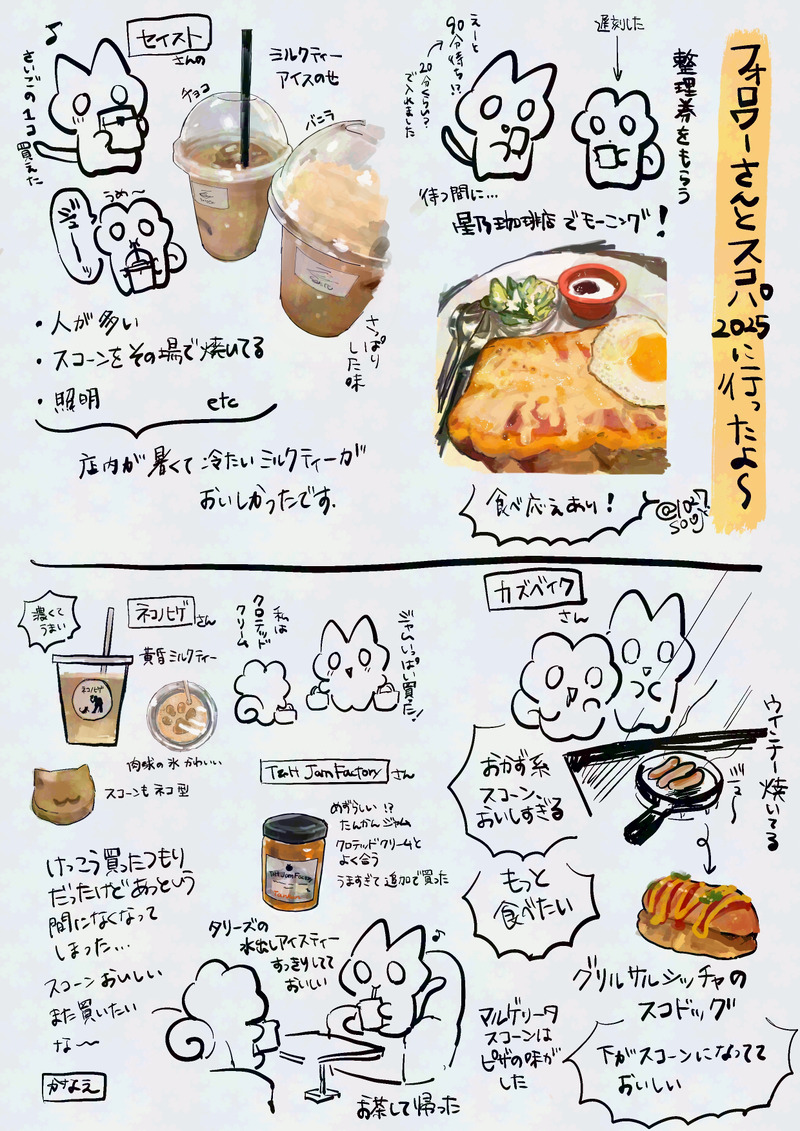 フォロワーさんとスコパ。2025に行ったよ〜
整理券をもらう
遅刻した
えーと
90分待ち!?
20分くらい?
で入れました
待つ間に…
星乃珈琲店でモーニング!
食べ応えあり!
セイストさんの
♪
さいごの1コ買えた
ミルクティー
アイスのせ
チョコ
バニラ
さっぱり
した味
うめ〜
ジューッ
・人が多い
・スコーンをその場で焼いてる
・照明 etc
店内が暑くて冷たいミルクティーが
おいしかったです.
カズベイクさん
ウインナー焼いてる
ジュ〜
おかず系
スコーン、
おいしすぎる
もっと
食べたい
グリルサルシッチャの
スコドッグ
下がスコーンになってて
おいしい
マルゲリータ
スコーンは
ピザの味が
した
ネコノヒゲさん
濃くて
うまい
黄昏ミルクティー
ネコノヒゲ
肉球の氷かわいい
スコーンもネコ型
私は
クロテッド
クリーム
ジャムいっぱい買った!
T&H Jam Factoryさん
めずらしい!?
たんかんジャム
クロテッドクリームと
よく合う
うますぎて追加で買った
T&H Jam Factory
けっこう買ったつもり
だったけどあっという
間になくなって
しまった…
スコーンおいしい
また買いたい
な〜
タリーズの
水出しアイスティー
すっきりしてて
おいしい
♪
お茶して帰った
かなえ